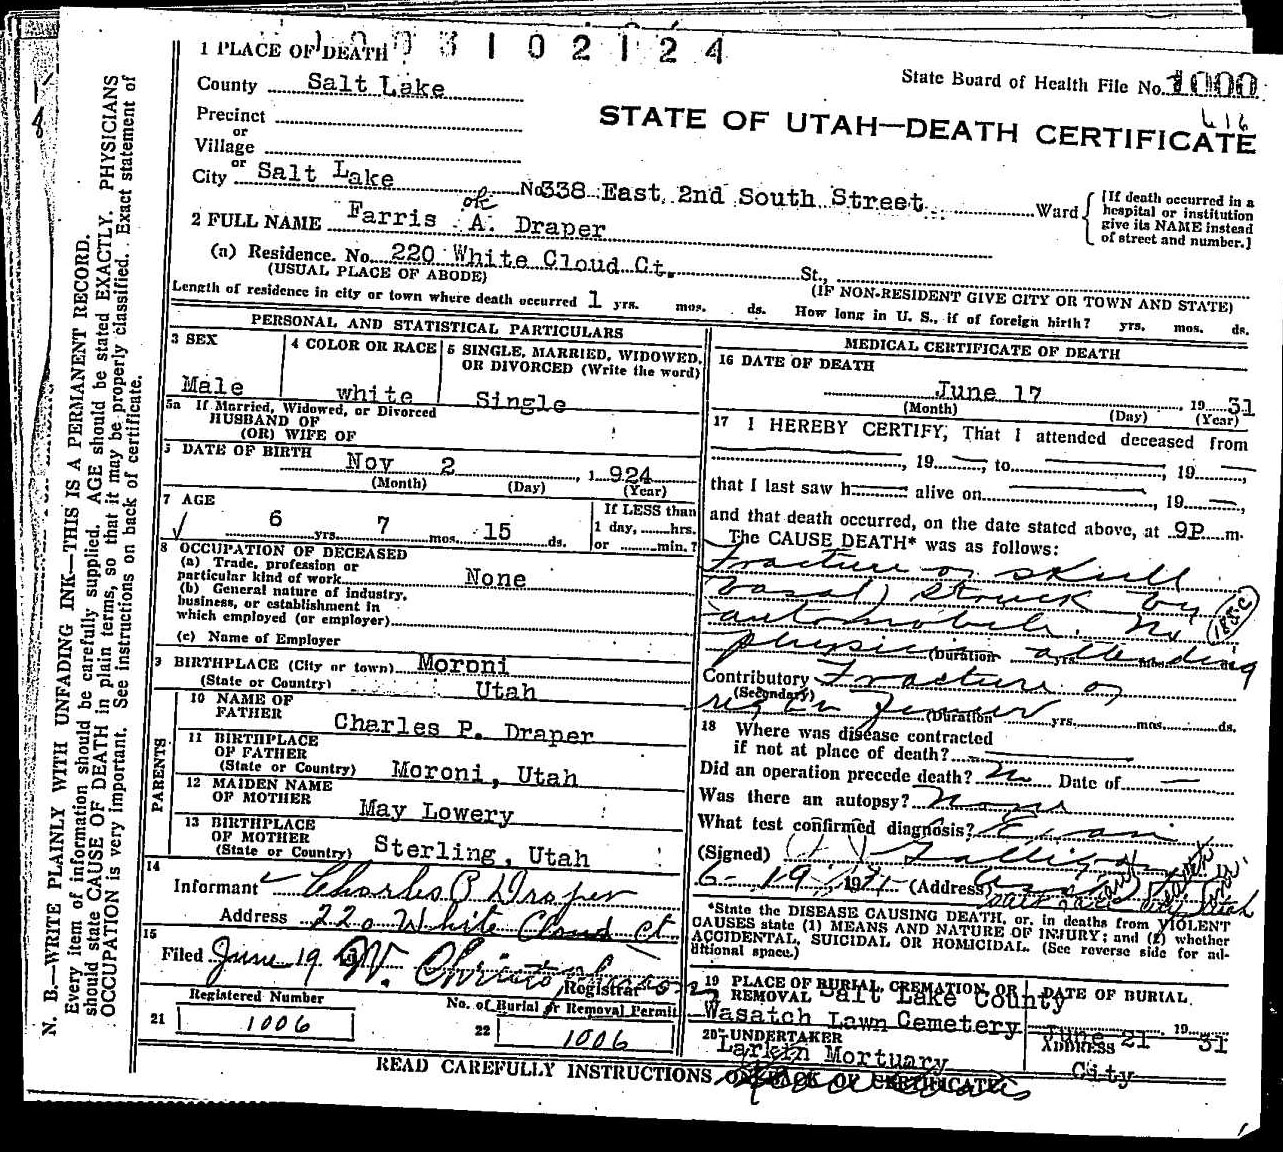 1003102124
1 PLACE OF DEATH
State Board of Health File No. 1000
County Salt Lake
616
STATE OF UTAH—DEATH CERTIFICATE
Precinct
or
Village
or
City Salt Lake No. 338 East 2nd South Street Ward
[If death occurred in a hospital or institution give its NAME instead of street and number.]
ok
2 FULL NAME Farris A. Draper
(a) Residence. No. 220 White Cloud Ct. St.,
(USUAL PLACE OF ABODE) (IF NON-RESIDENT GIVE CITY OR TOWN AND STATE)
Length of residence in city or town where death occurred 1 yrs. mos. ds. How long in U. S., if of foreign birth? yrs. mos. ds.
PERSONAL AND STATISTICAL PARTICULARS
3 SEX
Male
4 COLOR OR RACE
white
5 SINGLE, MARRIED, WIDOWED, OR DIVORCED (Write the word)
Single
5a If Married, Widowed, or Divorced
HUSBAND OF
(OR) WIFE OF
DATE OF BIRTH
Nov 2, 1924
(Month) (Day) (Year)
7 AGE
6 yrs. 7 mos. 15 ds.
If LESS than
1 day, hrs.
or min.?
8 OCCUPATION OF DECEASED
(a) Trade, profession or
particular kind of work None
(b) General nature of industry,
business, or establishment in
which employed (or employer)
(c) Name of Employer
9 BIRTHPLACE (City or town) Moroni
(State or Country) Utah
PARENTS
10 NAME OF
FATHER Charles P. Draper
11 BIRTHPLACE
OF FATHER
(State or Country) Moroni, Utah
12 MAIDEN NAME
OF MOTHER May Lowery
13 BIRTHPLACE
OF MOTHER
(State or Country) Sterling, Utah
14
Informant Charles P Draper
Address 220 White Cloud Ct
15
Filed June 19 W. Christopherson
Registrar
Registered Number
21 1006
No. of Burial or Removal Permit
22 1006
MEDICAL CERTIFICATE OF DEATH
16 DATE OF DEATH
June 17, 1931
(Month) (Day) (Year)
17 I HEREBY CERTIFY, That I attended deceased from
, 19 , to , 19 ,
that I last saw h alive on , 19 ,
and that death occurred, on the date stated above, at 9P m.
The CAUSE DEATH* was as follows:
Fracture of skull
basal, struck by
automobile. No
physician attending
(Duration yrs. mos. ds.
Contributory Fracture of
(Secondary)
right femur
(Duration yrs. mos. ds.
18 Where was disease contracted
if not at place of death?
Did an operation precede death? No Date of
Was there an autopsy? None
What test confirmed diagnosis? Exam
(Signed)
6-19 1931 (Address)
*State the DISEASE CAUSING DEATH, or, in deaths from VIOLENT
CAUSES state (1) MEANS AND NATURE OF INJURY; and (2) whether
ACCIDENTAL, SUICIDAL OR HOMICIDAL. (See reverse side for additional space.)
19 PLACE OF BURIAL, CREMATION, OR REMOVAL
Salt Lake County
Wasatch Lawn Cemetery
DATE OF BURIAL
June 21 1931
20 UNDERTAKER
Larkin Mortuary
ADDRESS
City
READ CAREFULLY INSTRUCTIONS ON BACK OF CERTIFICATE
N. B.—WRITE PLAINLY WITH UNFADING INK—THIS IS A PERMANENT RECORD.
Every item of information should be carefully supplied. AGE should be stated EXACTLY. PHYSICIANS
should state CAUSE OF DEATH in plain terms, so that it may be properly classified. Exact statement of
OCCUPATION is very important. See instructions on back of certificate.